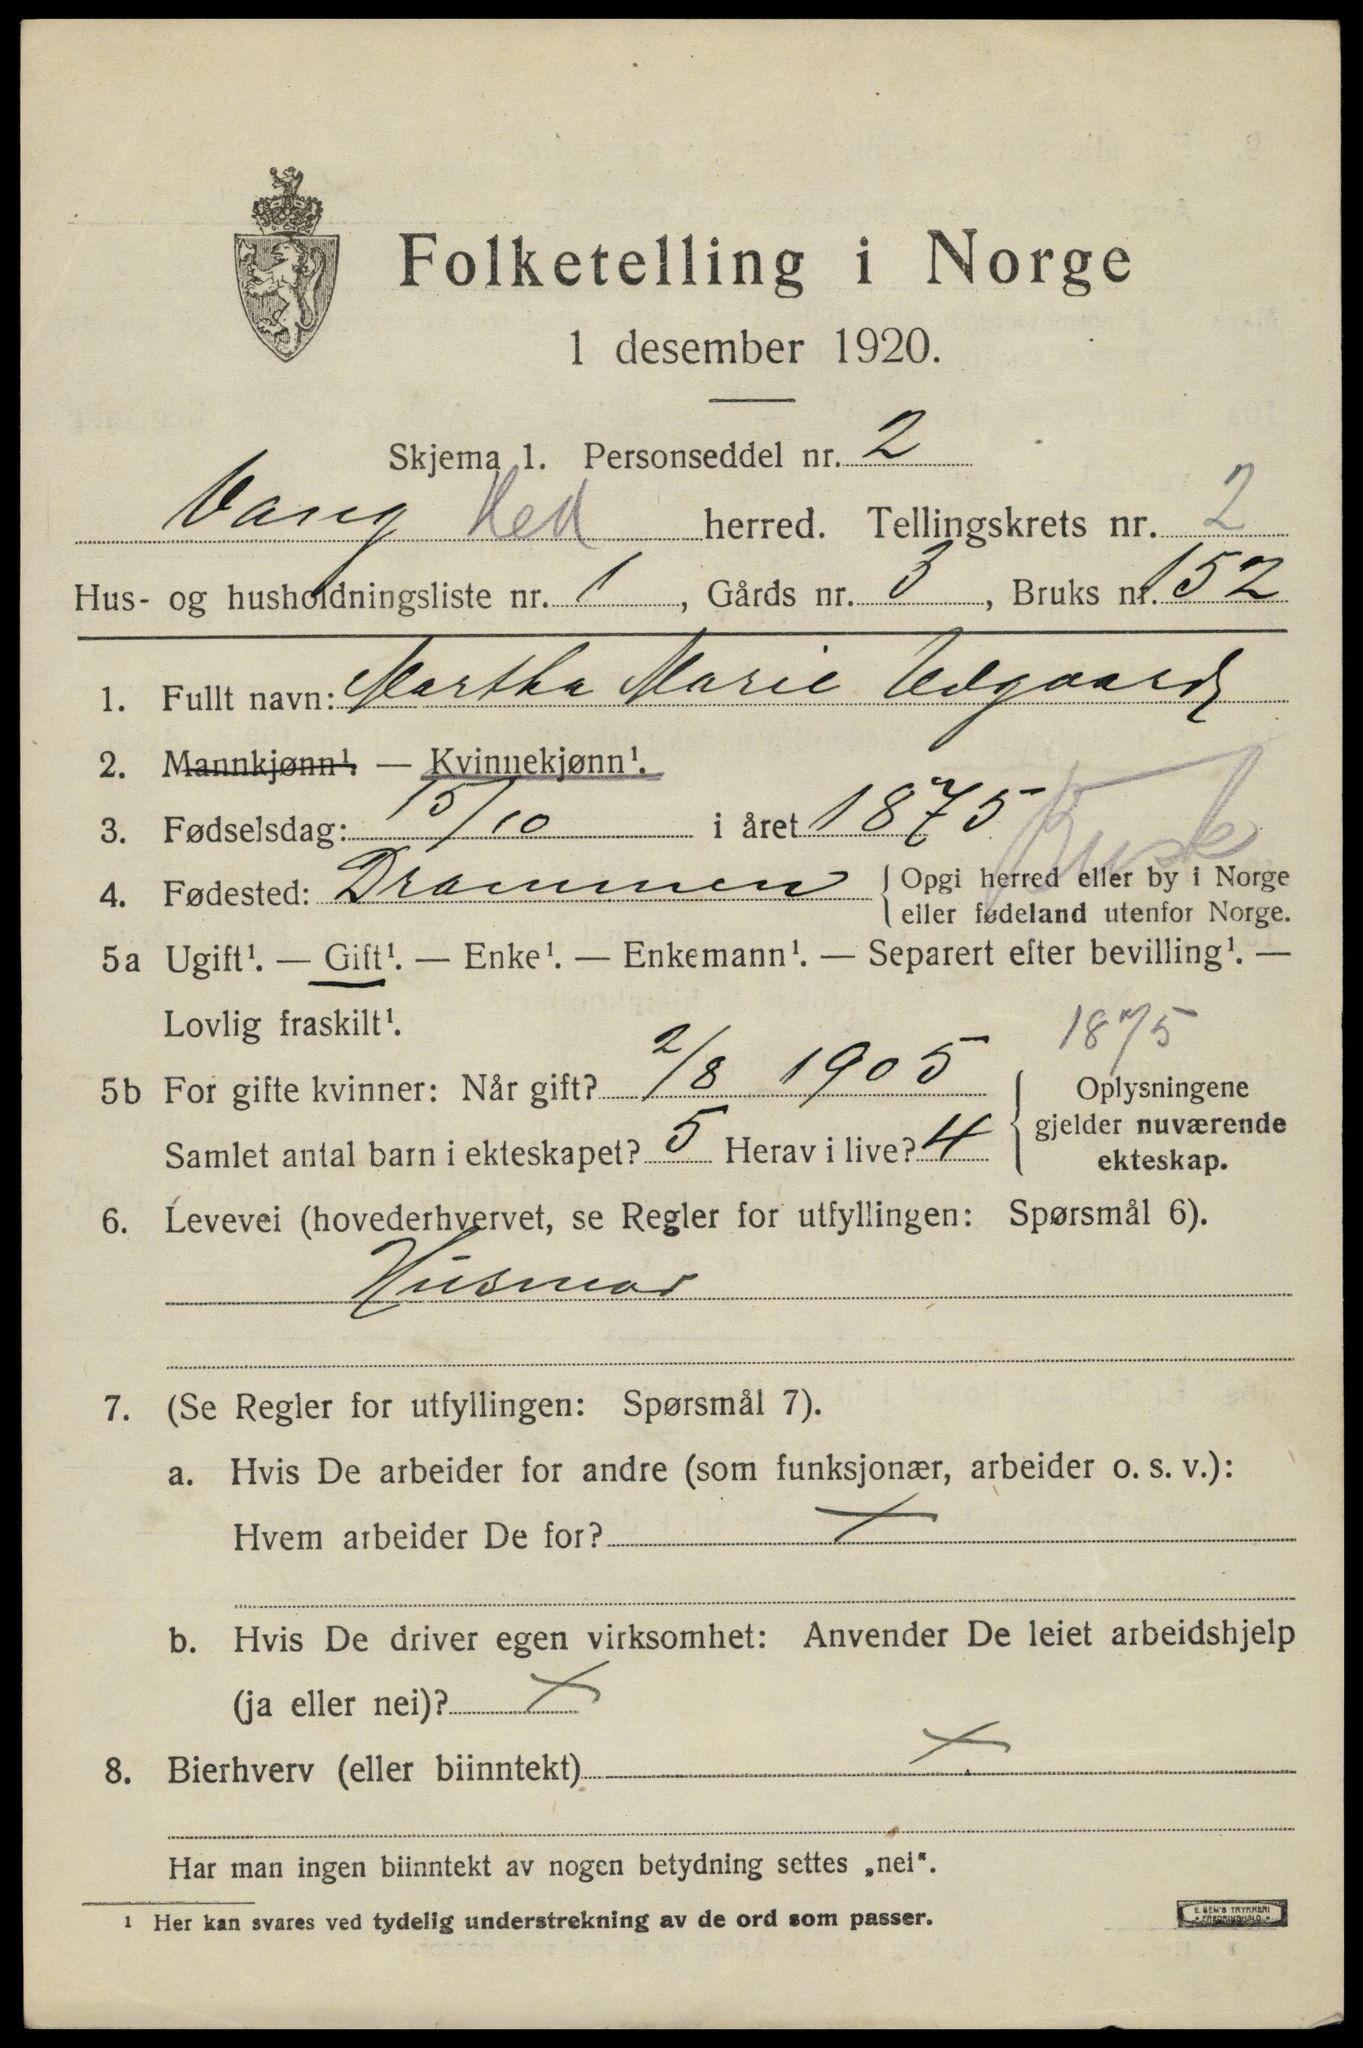 Folketelling i Norge
1 desember 1920.
Skjema 1. Personseddel nr. 2
Vang Hed herred. Tellingskrets nr. 2
Hus- og husholdningsliste nr. 1, Gårds nr. 3, Bruks nr. 152
1. Fullt navn: Martha Marie Udgaard
2. Mannkjønn¹. — Kvinnekjønn¹.
3. Fødselsdag: 15/10 i året 1875
4. Fødested: Drammen { Opgi herred eller by i Norge
eller fødeland utenfor Norge.
Busk
5a Ugift¹. — Gift¹. — Enke¹. — Enkemann¹. — Separert efter bevilling¹. —
Lovlig fraskilt¹.
1875
5b For gifte kvinner: Når gift? 2/8 1905 { Oplysningene
gjelder nuværende
ekteskap.
Samlet antal barn i ekteskapet? 5 Herav i live? 4
6. Levevei (hovederhvervet, se Regler for utfyllingen: Spørsmål 6).
Husmor
7. (Se Regler for utfyllingen: Spørsmål 7).
a. Hvis De arbeider for andre (som funksjonær, arbeider o. s. v.):
Hvem arbeider De for? X
b. Hvis De driver egen virksomhet: Anvender De leiet arbeidshjelp
(ja eller nei)? X
8. Bierhverv (eller biinntekt) X
Har man ingen biinntekt av nogen betydning settes „nei".
¹ Her kan svares ved tydelig understrekning av de ord som passer.
E. SEM'S TRYKKERI
FREDRIKSHALD